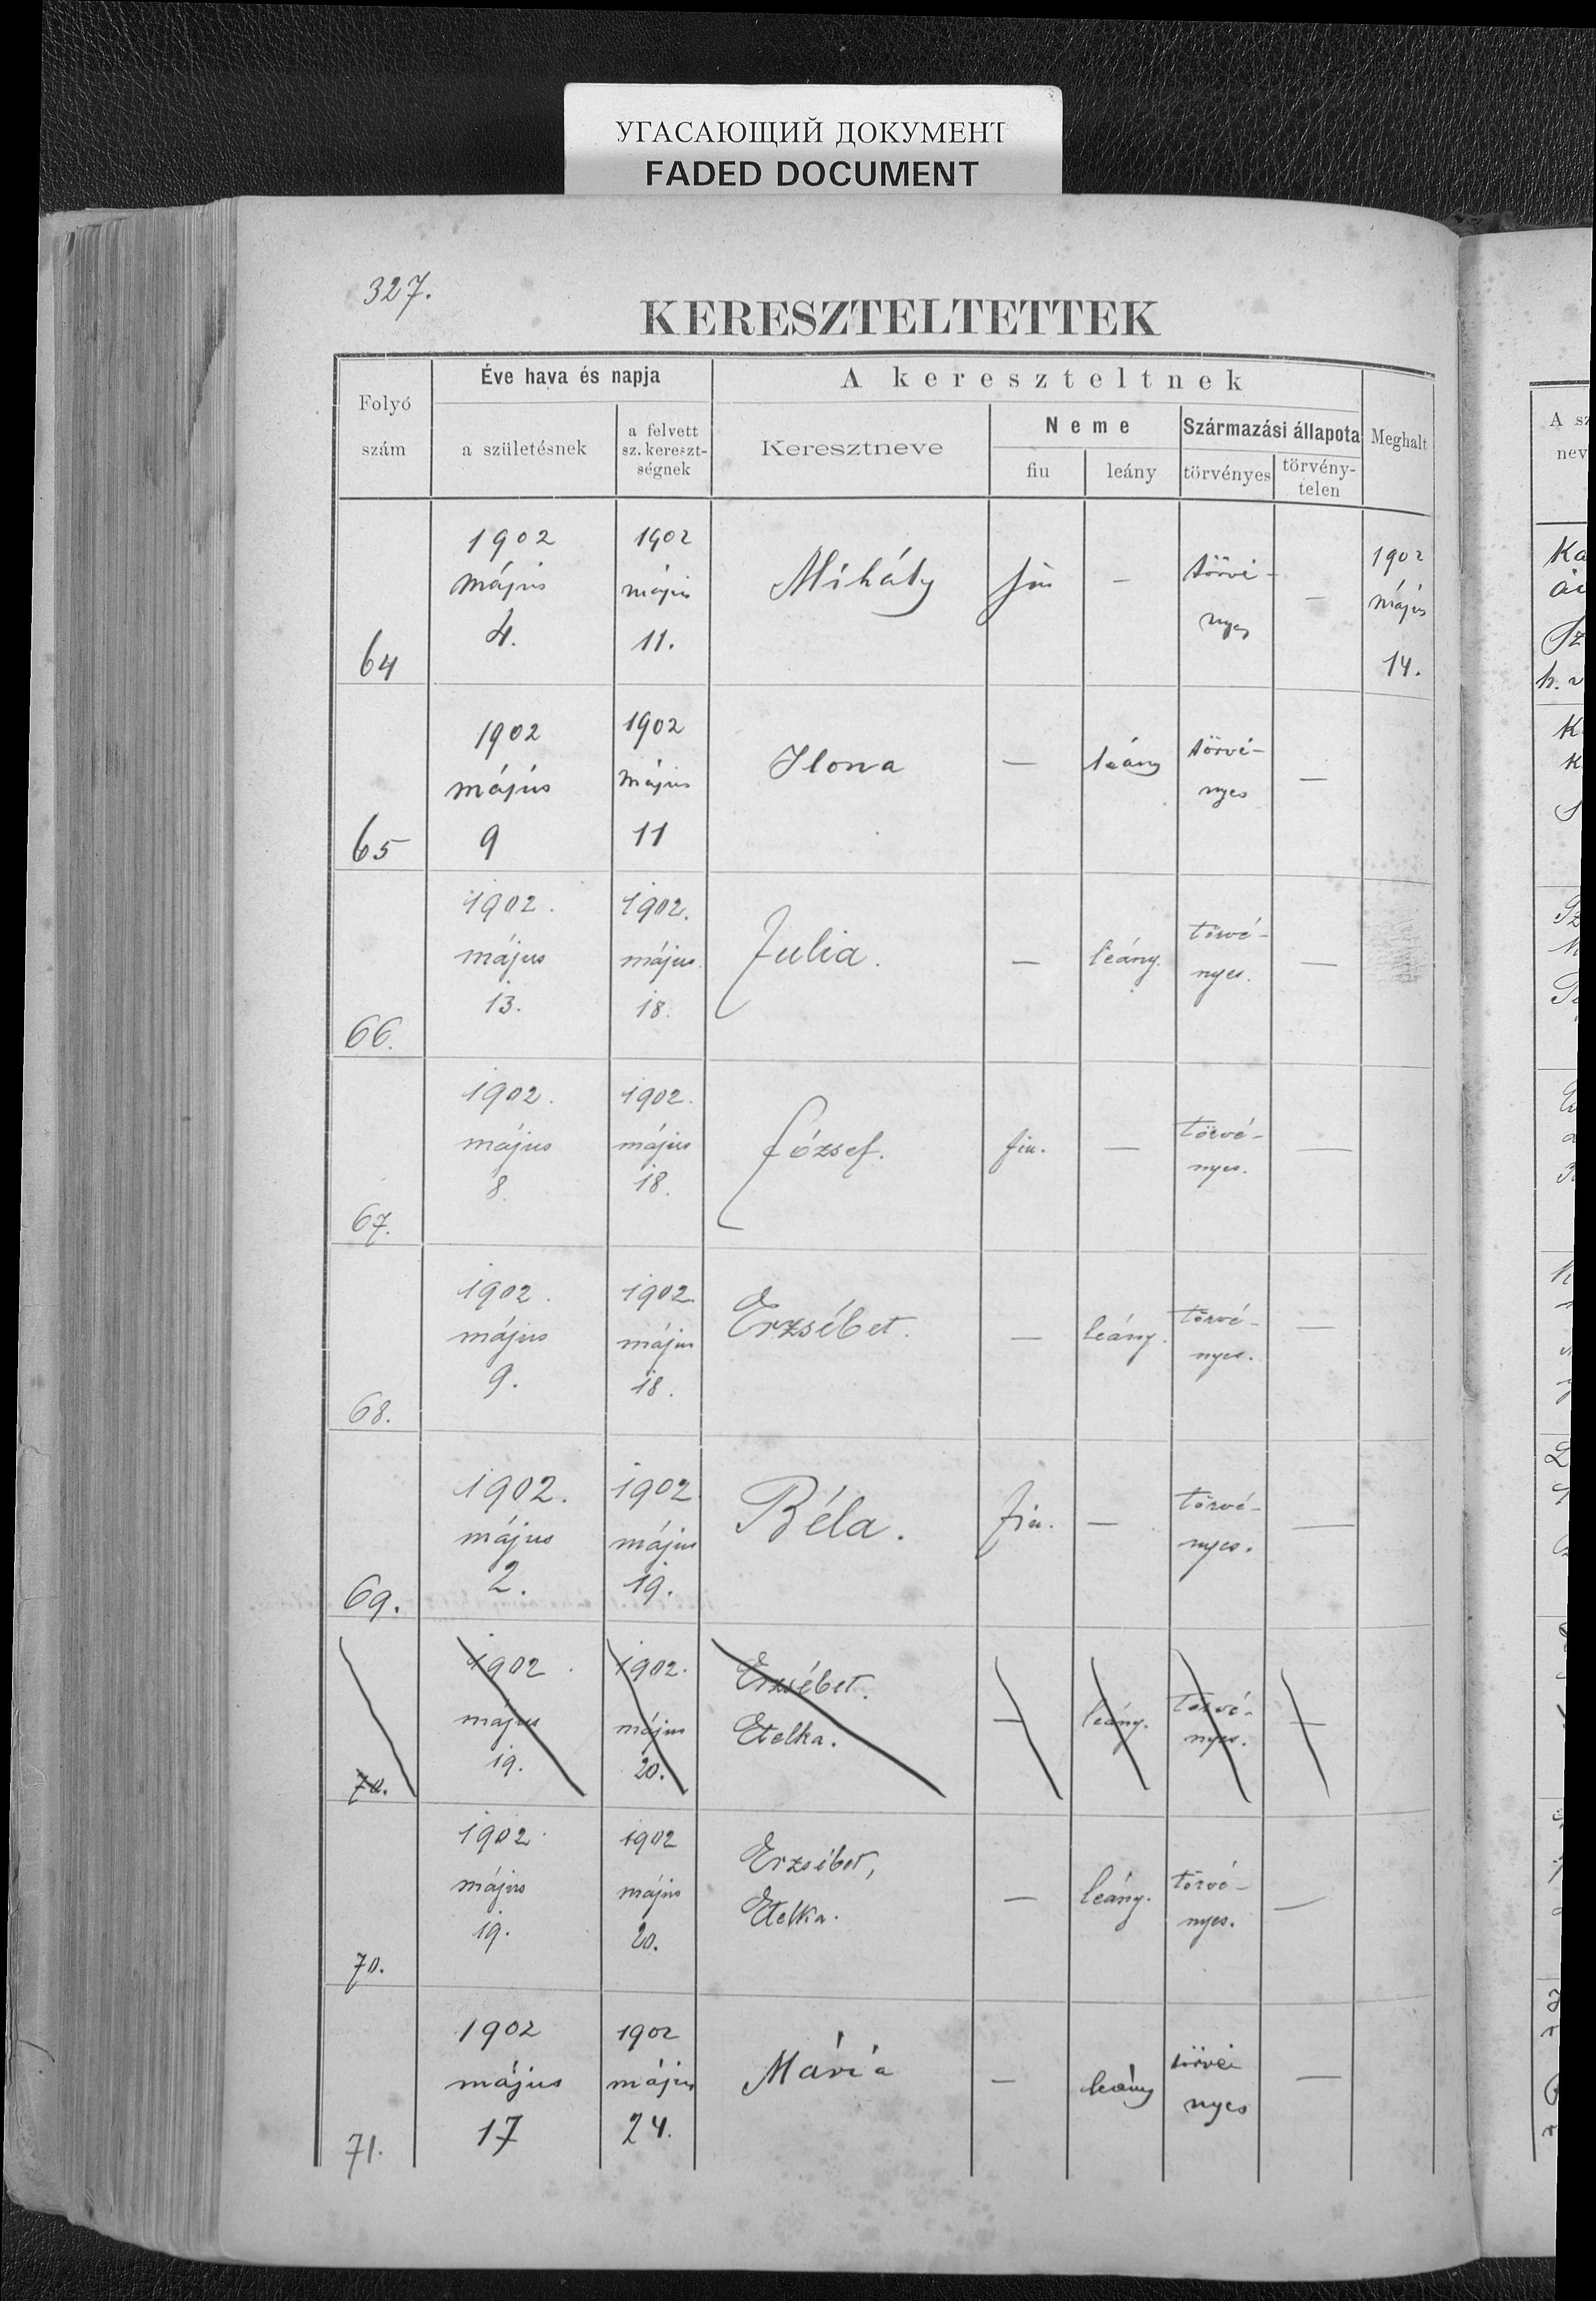 УГАСАЮЩИЙ ДОКУМЕНТ
FADED DOCUMENT
327.
KERESZTELTETTEK
Folyó szám
Éve hava és napja
a születésnek
a felvett sz. kereszt-ségnek
A kereszteltnek
Keresztneve
Neme
fiu
leány
Származási állapota
törvényes
törvény-telen
Meghalt
64
1902 május 4.
1902 május 11.
Mihály
fiu
—
törvé-nyes
—
1902 május 14.
65
1902 május 9
1902 május 11
Ilona
—
leány
törvé-nyes
—
66.
1902. május 13.
1902. május 18.
Julia.
—
leány.
törvé-nyes.
—
67.
1902. május 8.
1902. május 18.
József.
fiu.
—
törvé-nyes.
—
68.
1902. május 9.
1902. május 18.
Erzsébet.
—
leány.
törvé-nyes.
—
69.
1902. május 2.
1902 május 19.
Béla.
fiu.
—
törvé-nyes.
—
70.
1902. május 19.
1902. május 20.
Erzsébet.
Etelka.
—
leány.
törvé-nyes.
—
70.
1902. május 19.
1902 május 20.
Erzsébet,
Etelka.
—
leány.
törvé-nyes.
—
71.
1902 május 17
1902 május 24.
Mária
—
leány
törvé nyes
—
A sz
nev